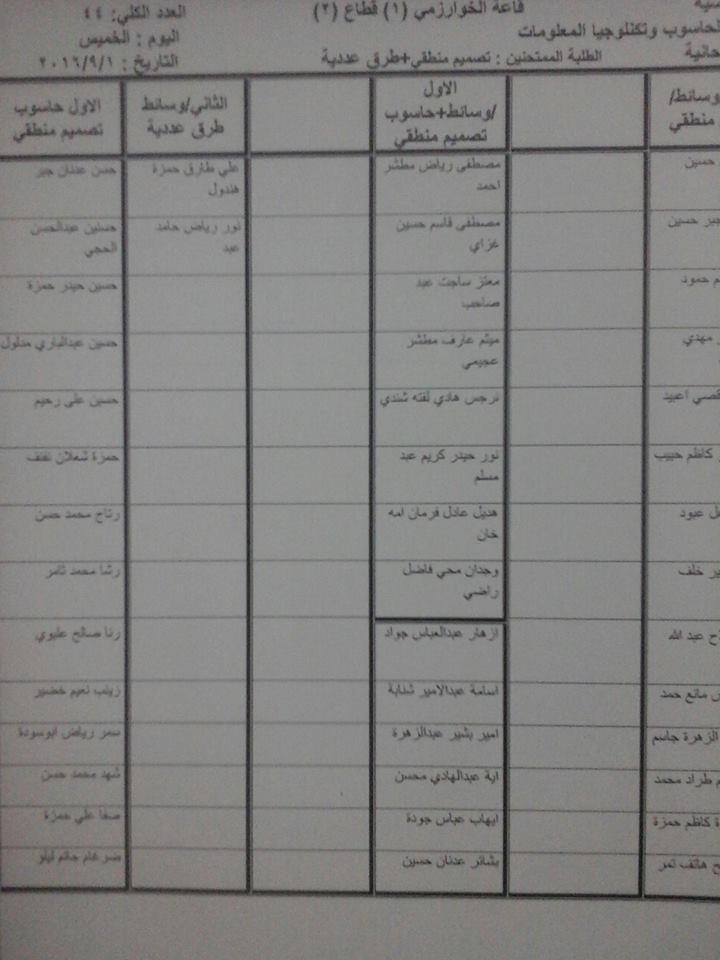 قاعة الخوارزمي (١) قطاع (٢)
العدد الكلي: ٤٤
الحاسوب وتكنلوجيا المعلومات
اليوم : الخميس
الطلبة الممتحنين : تصميم منطقي+طرق عددية
التاريخ : ٢٠١٦/٩/١
وسائط/
منطقي
حسين
جبر حسين
حمود
مهدي
قصي اعبيد
كاظم حبيب
عبود
خلف
عبد الله
مانع حمد
الزهرة جاسم
طراد محمد
كاظم حمزة
هاتف نمر
الاول
/وسائط+حاسوب
تصميم منطقي
مصطفى رياض مطشر
احمد
مصطفى قاسم حسين
غزاي
معتز ساجت عبد
صاحب
ميثم عارف مطشر
عجيمي
نرجس هادي لفته شندي
نور حيدر كريم عبد
مسلم
هديل عادل فرمان امه
خان
وجدان محي فاضل
راضي
ازهار عبدالعباس جواد
اسامة عبدالامير شنابة
امير بشير عبدالزهرة
اية عبدالهادي محسن
ايهاب عباس جودة
بشائر عدنان حسين
الثاني/وسائط
طرق عددية
علي طارق حمزة
هندول
نور رياض حامد
عبد
الاول حاسوب
تصميم منطقي
حسن عدنان جبر
حسنين عبدالحسن
الحجي
حسين حيدر حمزة
حسين عبدالباري مدلول
حسين علي رحيم
حمزة شعلان
رتاج محمد حسن
رشا محمد ثامر
رنا صالح عليوي
زينب نعيم خضير
سمر رياض ابوسودة
شهد محمد حسن
صفا علي حمزة
ضرغام حاتم ليلو